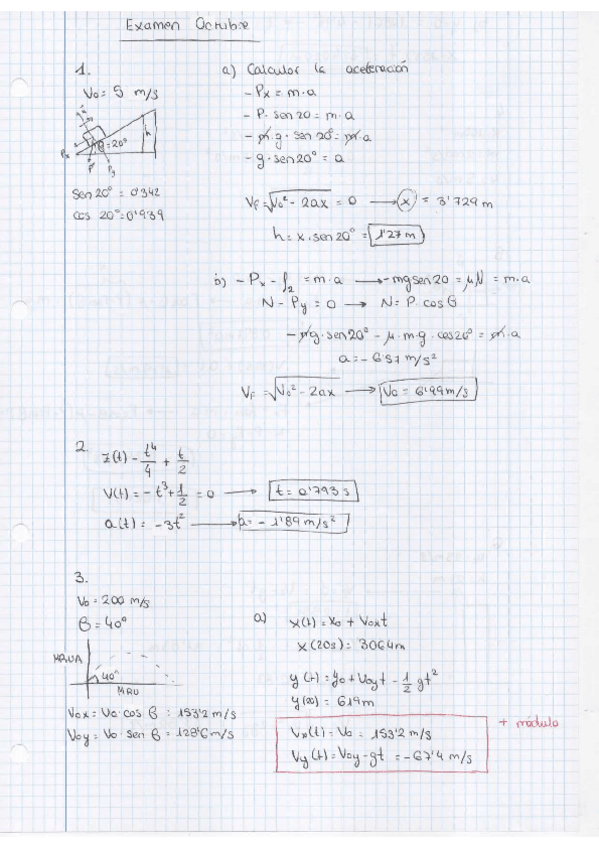 Examen Octubre
1.
V₀ = 5 m/s
h
θ = 20°
Px
P
Py
sen 20° = 0'342
cos 20° = 0'939
a) Calcular la aceleración
- Px = m · a
- P · sen 20 = m · a
- m · g · sen 20° = m · a
- g · sen 20° = a
VF = √V₀² - 2ax = 0 → x = 3'729 m
h = x · sen 20° = 1'27 m
b) - Px - fr = m · a → - mg sen 20 = μN = m · a
N - Py = 0 → N = P. cos θ
- mg · sen 20° - μ · m · g · cos 20° = m · a
a = - 6'57 m/s²
VF = √V₀² - 2ax → V₀ = 6'99 m/s
2.
z(t) - t⁴/4 + t/2
V(t) = - t³ + 1/2 = 0 → t = 0'793 s
a(t) = - 3t² → a = - 1'89 m/s²
3.
V₀ = 200 m/s
θ = 40°
MRUA
40°
MRU
Vox = Vo · cos θ = 153'2 m/s
Voy = Vo · sen θ = 128'6 m/s
a) x(t) = x₀ + Voxt
x(20s) = 3064m
y(t) = y₀ + Voyt - 1/2 gt²
y(20) = 619m
Vx(t) = Vo = 153'2 m/s
Vy(t) = Voy - gt = - 67'4 m/s
+ módulo